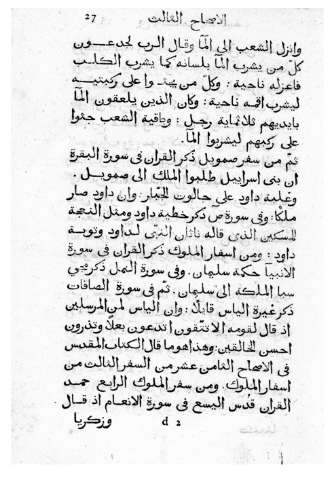 27 الاصحاح الثالث
وانزل الشعب الى الما وقال الرب لجدعون
كل من يشرب الما بلسانه كما يشرب الكلب
فاعزله ناحية : وكل من على ركبتيه
ليشرب ناحية : وكان الذين يلعقون الما
بايديهم ثلاثماية رجل : وباقية الشعب جثوا
على ركبهم ليشربوا الما .
ثم من سفر صمويل ذكر القران في سورة البقرة
ان بنى اسراييل طلبوا الملك الى صمويل .
وغلبة داود على جالوت الجبار . وان داود صار
ملكا . وفي سورة ص ذكر خطية داود ومثل النعجة
للمسكين الذى قاله ناثان النبى لداود وتوبة
داود : ومن اسفار الملوك ذكر القران في سورة
الانبيا حكمة سليمان . وفي سورة النمل ذكر مجي
سبا الملكة الى سليمان . ثم في سورة الصافات
ذكر غيرة الياس قايلا : وان الياس لمن المرسلين
اذ قال لقومه الا تتقون اتدعون بعلا وتذرون
احسن الخالقين . وهذا هو ما قال الكتاب المقدس
في الاصحاح الثامن عشر من السفر الثالث من
اسفار الملوك . ومن سفر الملوك الرابع حمد
القران قدس اليسع في سورة الانعام اذ قال
d 2 وزكريا